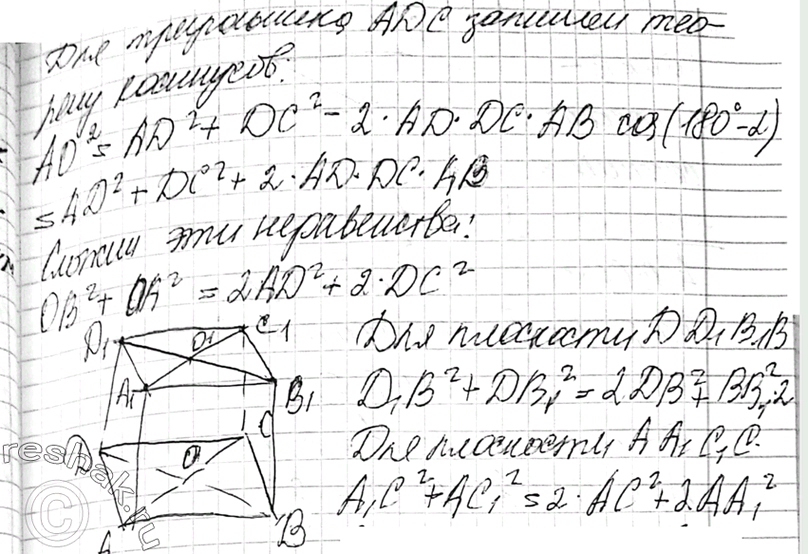 Для треугольника ADC запишем тео-
рему косинусов:
AD² = AD² + DC² - 2 · AD · DC · AB cos(180° - α)
= AD² + DC² + 2 · AD · DC · AB
Сложим эти неравенства:
DB² + CA² = 2AD² + 2 · DC²
D₁
O₁
C₁
A₁
B₁
D
O
C
A
B
Для плоскости DD₁B₁B
D₁B² + DB₁² = 2DB² + BB₁² · 2
Для плоскости AA₁C₁C.
A₁C² + AC₁² = 2 · AC² + 2AA₁²
reshak.ru
©